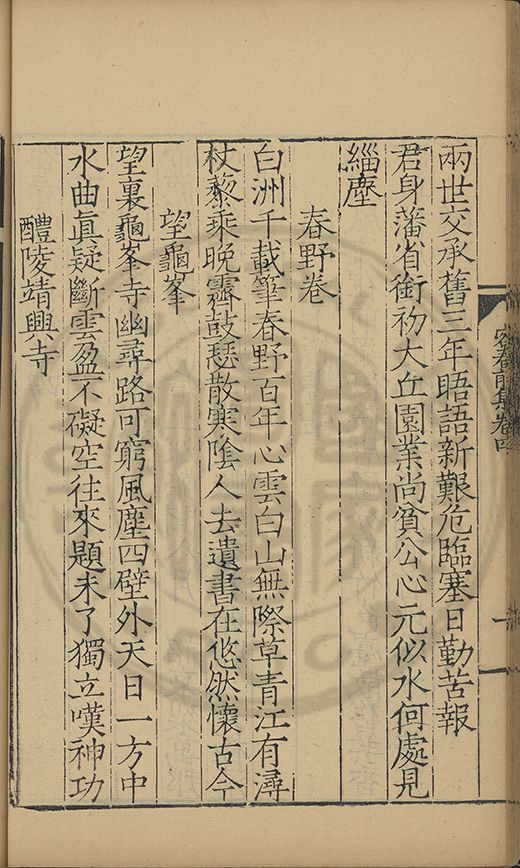 兩世交承舊三年晤語新艱危臨塞日勤苦報
君身藩省銜初大丘園業尚貧公心元似水何處見
緇塵
春野卷
白洲千載筆春野百年心雲白山無際草青江有潯
杖藜乘晚霽鼓瑟散寒陰人去遺書在悠然懷古今
望龜峯
望裏龜峯寺幽尋路可窮風塵四壁外天日一方中
水曲眞疑斷雲盈不礙空往來題未了獨立嘆神功
醴陵靖興寺
容春前集卷四